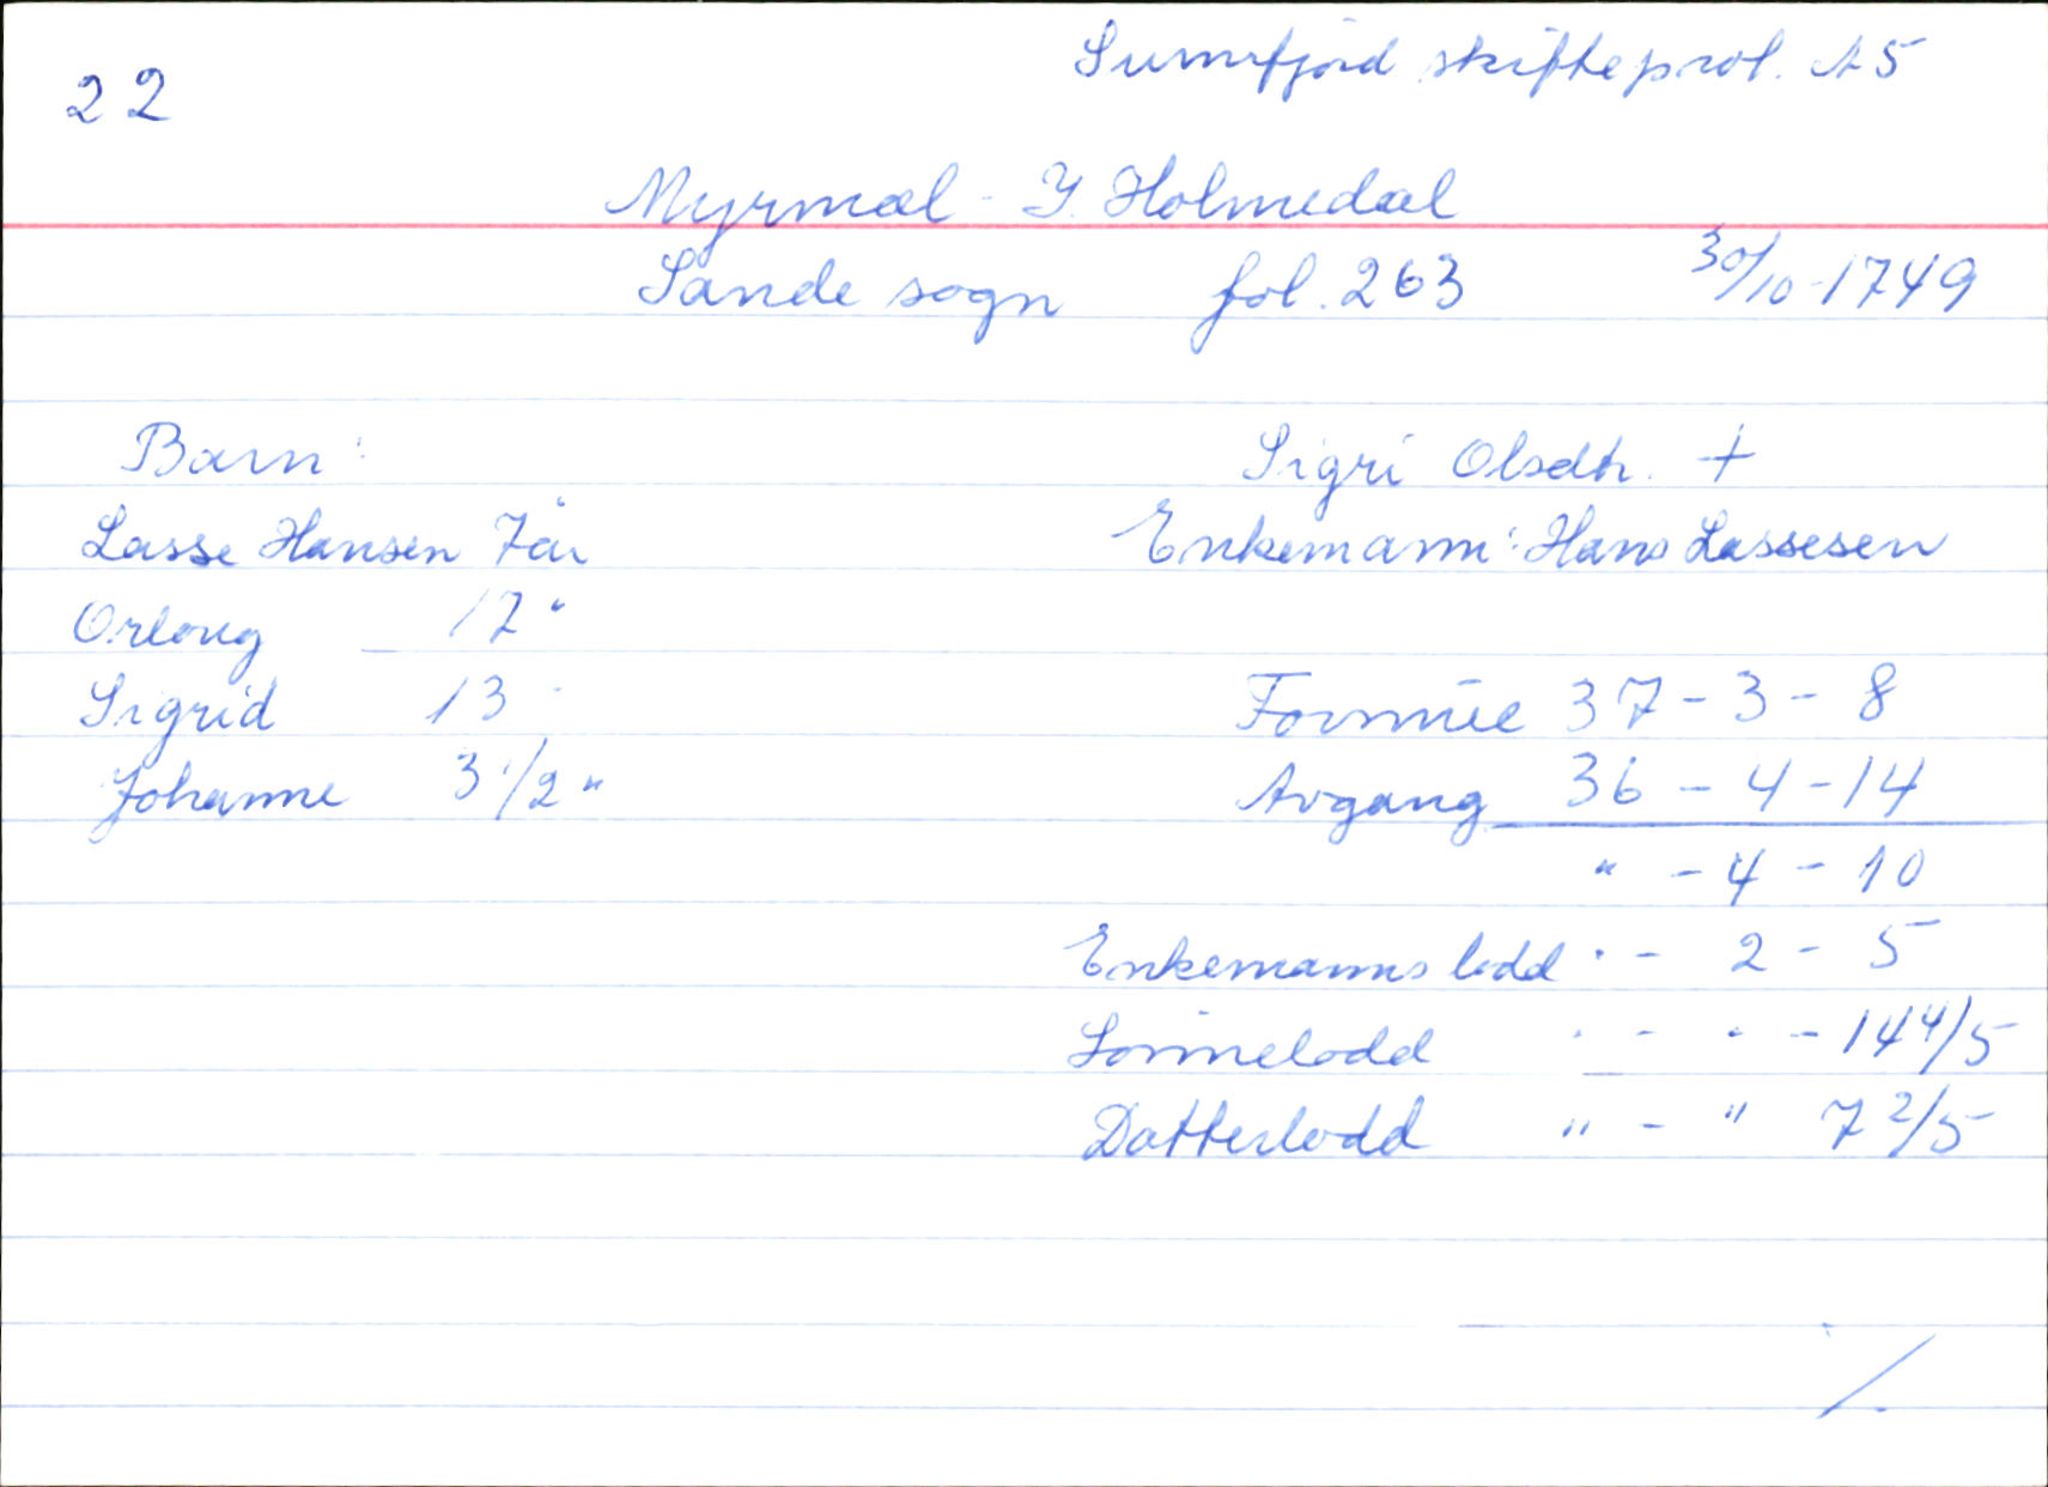 22
Sunnfjord skifteprot. A5
Myrmæl - Y. Holmedal
Sande sogn fol. 263 30/10-1749
Barn: Sigri Olsdtr. +
Lasse Hansen 7 år Enkemann: Hans Lassesen
Orloug 17 "
Sigrid 13 - Formúe 37 - 3 - 8
Johanne 3 1/2 " Avgang 36 - 4 - 14
" - 4 - 10
Enkemanns lodd " - 2 - 5
Sønnelodd " - " - 14 4/5
Datterlodd " - " 7 2/5
/.